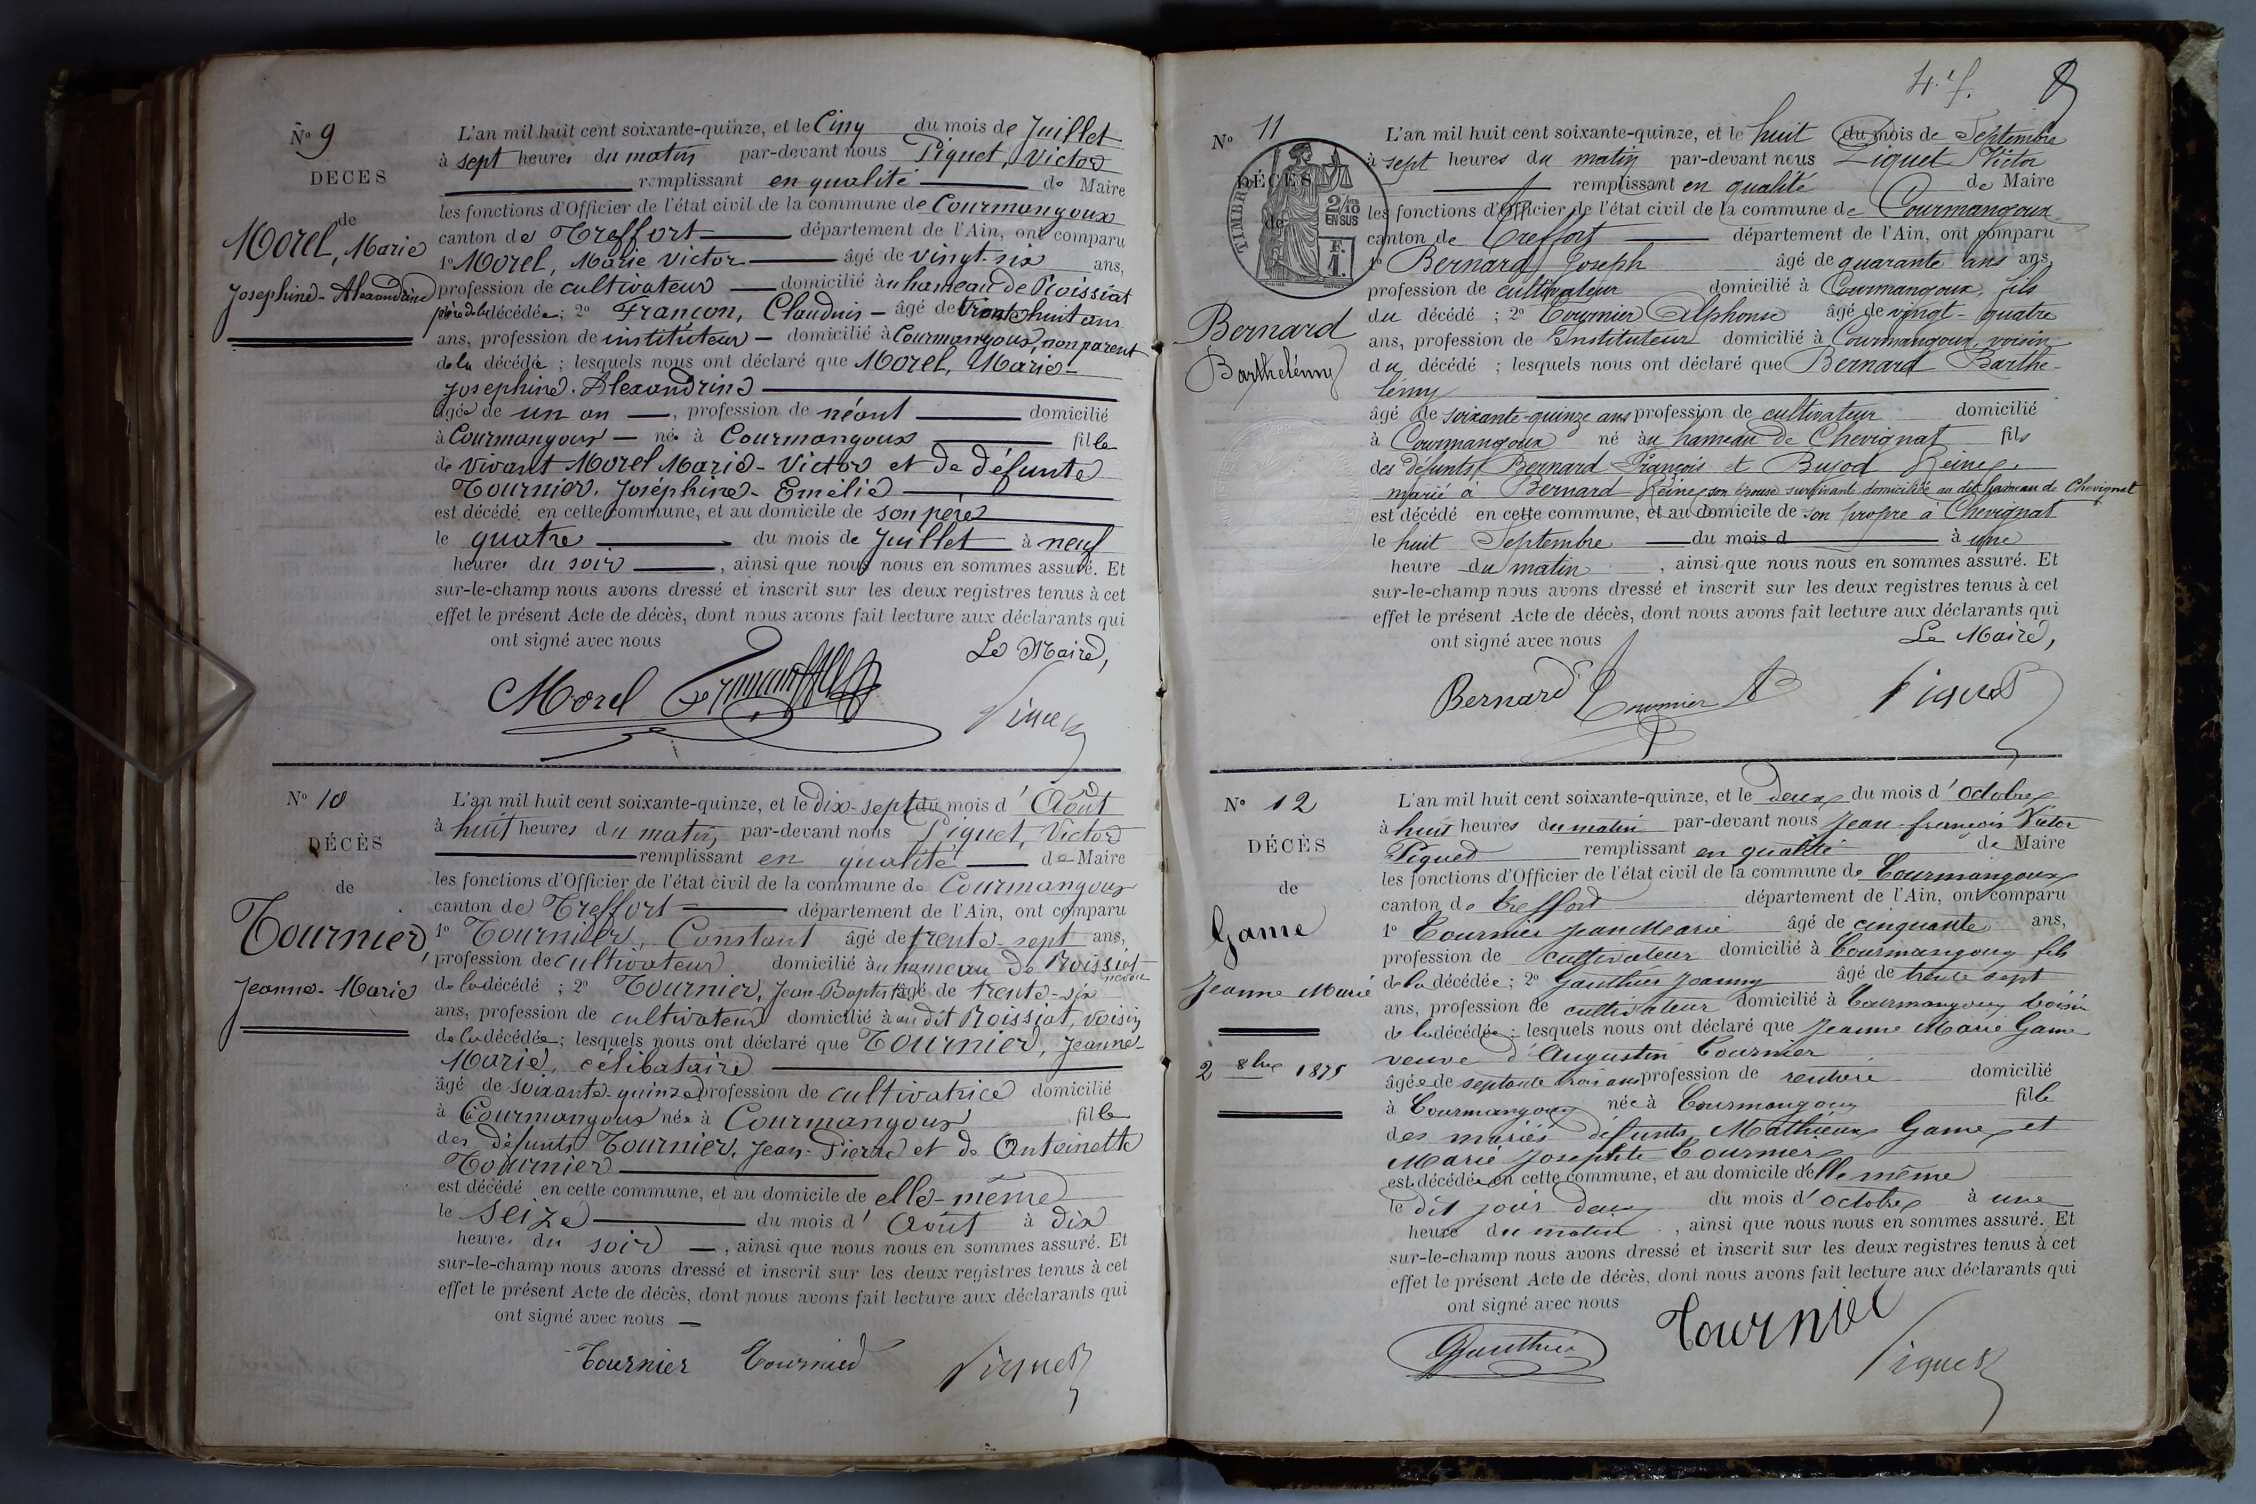 No 9
DECES
de
Morel, Marie
Josephine-Alexandrine
L'an mil huit cent soixante-quinze, et le Cinq du mois de Juillet
à sept heures du matin par-devant nous Piquet, Victor
remplissant en qualité de Maire
les fonctions d'Officier de l'état civil de la commune de Courmangoux
canton de Treffort département de l'Ain, ont comparu
1o Morel, Marie Victor âgé de vingt-six ans,
profession de cultivateur domicilié au hameau de Roissiat
père de la décédée; 2o Francon, Claudius âgé de trente huit ans
ans, profession de instituteur domicilié à Courmangoux, non parent
de la décédée; lesquels nous ont déclaré que Morel, Marie-
Josephine-Alexandrine
âgée de un an, profession de néant domicilié
à Courmangoux née à Courmangoux fille
de vivant Morel Marie-Victor et de défunte
Tournier, Joséphine-Emélie
est décédé en cette commune, et au domicile de son père
le quatre du mois de Juillet à neuf
heures du soir, ainsi que nous nous en sommes assuré. Et
sur-le-champ nous avons dressé et inscrit sur les deux registres tenus à cet
effet le présent Acte de décès, dont nous avons fait lecture aux déclarants qui
ont signé avec nous
Le Maire,
Morel Piquet
No 10
DÉCÈS
de
Tournier,
Jeanne-Marie
L'an mil huit cent soixante-quinze, et le dix-sept du mois d'Août
à huit heures du matin par-devant nous Piquet, Victor
remplissant en qualité de Maire
les fonctions d'Officier de l'état civil de la commune de Courmangoux
canton de Treffort département de l'Ain, ont comparu
1o Tournier, Constant âgé de trente-sept ans,
profession de cultivateur domicilié au hameau de Roissiat
neveu
de la décédé; 2o Tournier, Jean-Baptiste âgé de trente-six
ans, profession de cultivateur domicilié à au dit Roissiat, voisin
de la décédée; lesquels nous ont déclaré que Tournier, Jeanne-
Marie, célibataire
âgé de soixante-quinze profession de cultivatrice domicilié
à Courmangoux née à Courmangoux fille
des défunts Tournier, Jean-Pierre et de Antoinette
Tournier
est décédé en cette commune, et au domicile de elle-même
le seize du mois d'Août à dix
heures du soir, ainsi que nous nous en sommes assuré. Et
sur-le-champ nous avons dressé et inscrit sur les deux registres tenus à cet
effet le présent Acte de décès, dont nous avons fait lecture aux déclarants qui
ont signé avec nous
Tournier Tournier Piquet
No 11
DÉCÈS
de
TIMBRE
2/10
EN SUS
F.
1.
Bernard
Barthelémy
L'an mil huit cent soixante-quinze, et le huit du mois de Septembre
à sept heures du matin par-devant nous Piquet Victor
remplissant en qualité de Maire
les fonctions d'Officier de l'état civil de la commune de Courmangoux
canton de Treffort département de l'Ain, ont comparu
1o Bernard Joseph âgé de quarante ans ans,
profession de cultivateur domicilié à Courmangoux, fils
du décédé; 2o Tournier Alphonse âgé de vingt-quatre
ans, profession de Instituteur domicilié à Courmangoux, voisin
du décédé; lesquels nous ont déclaré que Bernard Barthe-
lémy
âgé de soixante-quinze ans profession de cultivateur domicilié
à Courmangoux né au hameau de Chevignat fils
des défunts Bernard François et Bujod Reine,
marié à Bernard Reine son épouse survivante domiciliée au dit hameau de Chevignat
est décédé en cette commune, et au domicile de son propre à Chevignat
le huit Septembre du mois d à une
heure du matin, ainsi que nous nous en sommes assuré. Et
sur-le-champ nous avons dressé et inscrit sur les deux registres tenus à cet
effet le présent Acte de décès, dont nous avons fait lecture aux déclarants qui
ont signé avec nous
Le Maire,
Bernard Tournier A Piquet
No 12
DÉCÈS
de
Game
Jeanne Marie
2 8bre 1875
L'an mil huit cent soixante-quinze, et le deux du mois d'octobre
à huit heures du matin par-devant nous Jean-françois Victor
Piqued remplissant en qualité de Maire
les fonctions d'Officier de l'état civil de la commune de Courmangoux
canton de Trefford département de l'Ain, ont comparu
1o Tournier Jean Marie âgé de cinquante ans,
profession de cultivateur domicilié à Courmangoux fils
de la décédée; 2o Gauthier Joanny âgé de trente sept
ans, profession de cultivateur domicilié à Courmangoux voisin
de la décédée; lesquels nous ont déclaré que Jeanne Marie Game
veuve d'Augustin Tournier
âgée de septante trois ans profession de rentière domicilié
à Courmangoux née à Courmangoux fille
des mariés défunts Mathieux Game et
Marie Josephte Tournier
est décédée en cette commune, et au domicile d'elle même
le dit jour deux du mois d'octobre à une
heure du matin, ainsi que nous nous en sommes assuré. Et
sur-le-champ nous avons dressé et inscrit sur les deux registres tenus à cet
effet le présent Acte de décès, dont nous avons fait lecture aux déclarants qui
ont signé avec nous
Gauthier Tournier Piquet